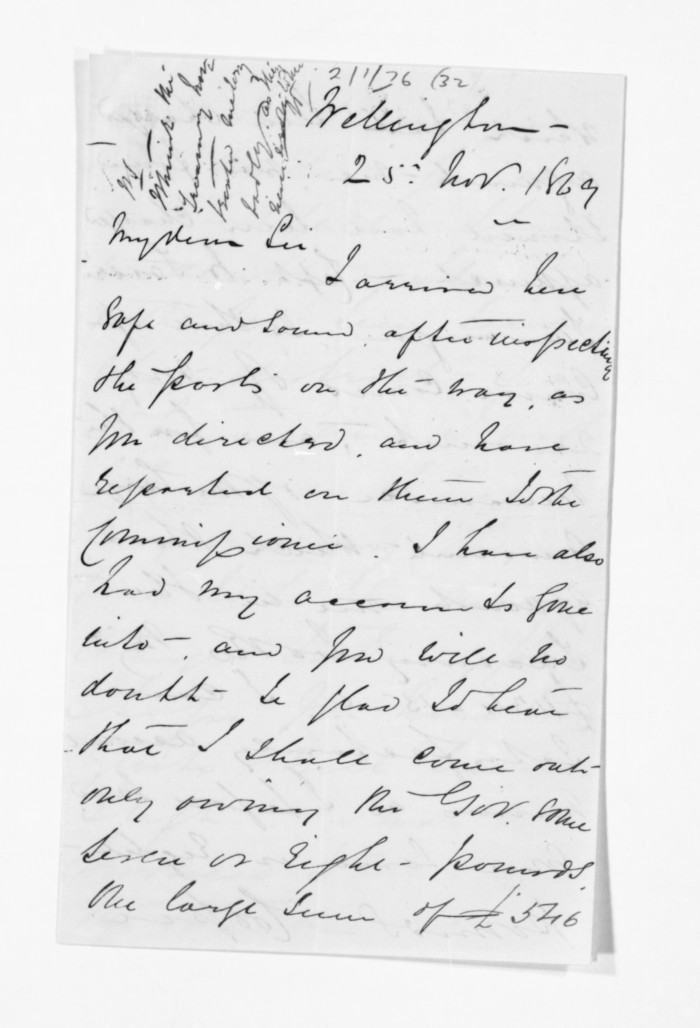 2/1/76 (32
Wellington -
25: Nov. 1869
My dear Sir
I arrived here
safe and sound, after inspecting
the posts on the way, as
you directed, and have
reported on them to the
Commissioner. I have also
had my accounts gone
into -, and you will no
doubt - be glad to hear
that I shall come out
only owing the Gov. some
seven or eight - pounds,
the large sum of £546
I think the
have
as they